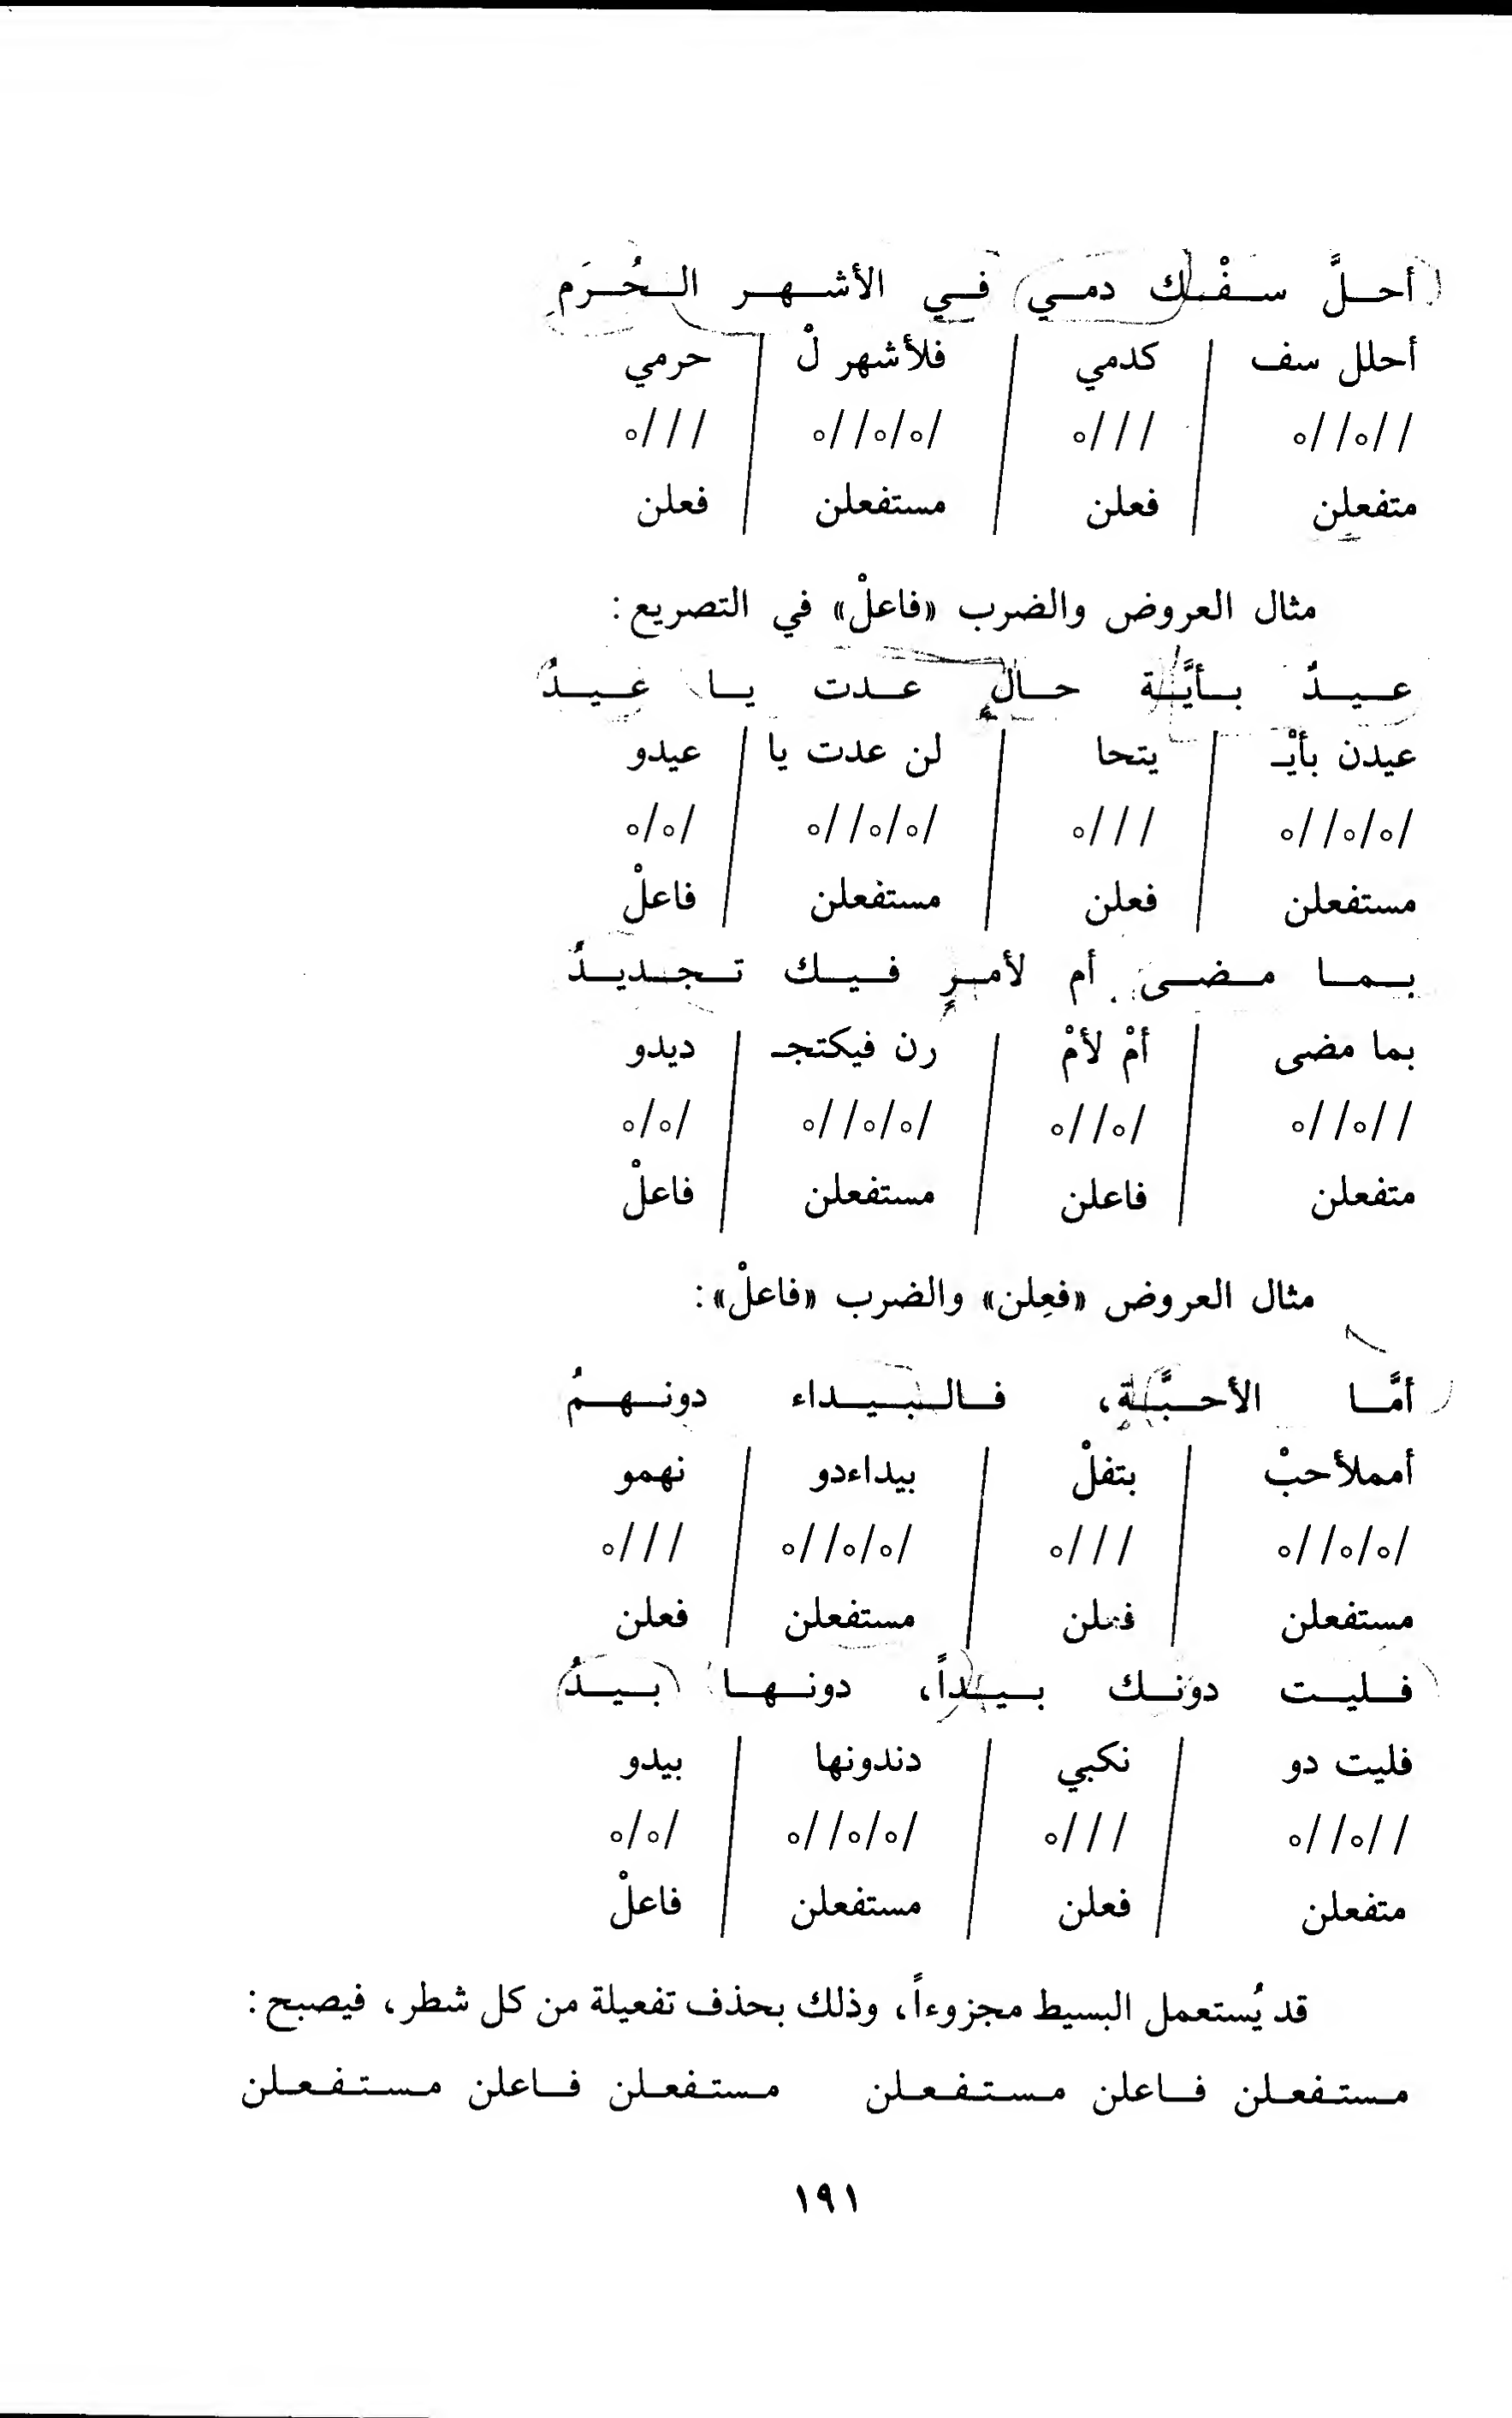 أحلَّ سفْك دمي في الأشهر الحُرَم
أحلل سف | كدمي | فلأشهر لْ | حرمي
//ه//ه | ///ه | /ه/ه//ه | ///ه
متفعلن | فعلن | مستفعلن | فعلن
مثال العروض والضرب «فاعلْ» في التصريع:
عيدٌ بأيَّة حالٍ عدت يا عيدُ
عيدن بأيْـ | يتحا | لن عدت يا | عيدو
/ه/ه//ه | ///ه | /ه/ه//ه | /ه/ه
مستفعلن | فعلن | مستفعلن | فاعلْ
بما مضى أم لأمرٍ فيك تجديدُ
بما مضى | أمْ لأمْ | رن فيكتجـ | ديدو
//ه//ه | /ه//ه | /ه/ه//ه | /ه/ه
متفعلن | فاعلن | مستفعلن | فاعلْ
مثال العروض «فعِلن» والضرب «فاعلْ»:
أمَّا الأحبَّة، فالبيداء دونهمُ
أمملأحبْ | بتفلْ | بيداءدو | نهمو
/ه/ه//ه | ///ه | /ه/ه//ه | ///ه
مستفعلن | فعلن | مستفعلن | فعلن
فليت دونك بيداً، دونها بيدُ
فليت دو | نكبي | دندونها | بيدو
//ه//ه | ///ه | /ه/ه//ه | /ه/ه
متفعلن | فعلن | مستفعلن | فاعلْ
قد يُستعمل البسيط مجزوءاً، وذلك بحذف تفعيلة من كل شطر، فيصبح:
مستفعلن فاعلن مستفعلن مستفعلن فاعلن مستفعلن
١٩١